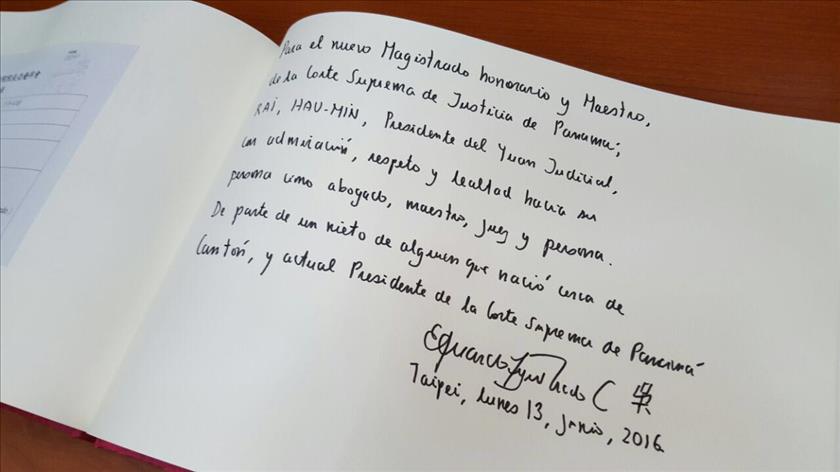 Para el nuevo Magistrado honorario y Maestro,
de la Corte Suprema de Justicia de Panama;
RAI, HAU-MIN, Presidente del Yuan Judicial,
con admiración, respeto y lealtad hacia su
persona como abogado, maestro, juez y persona.
De parte de un nieto de alguien que nació cerca de
Cantón, y actual Presidente de la Corte Suprema de Panamá
Taipei, lunes 13, junio, 2016